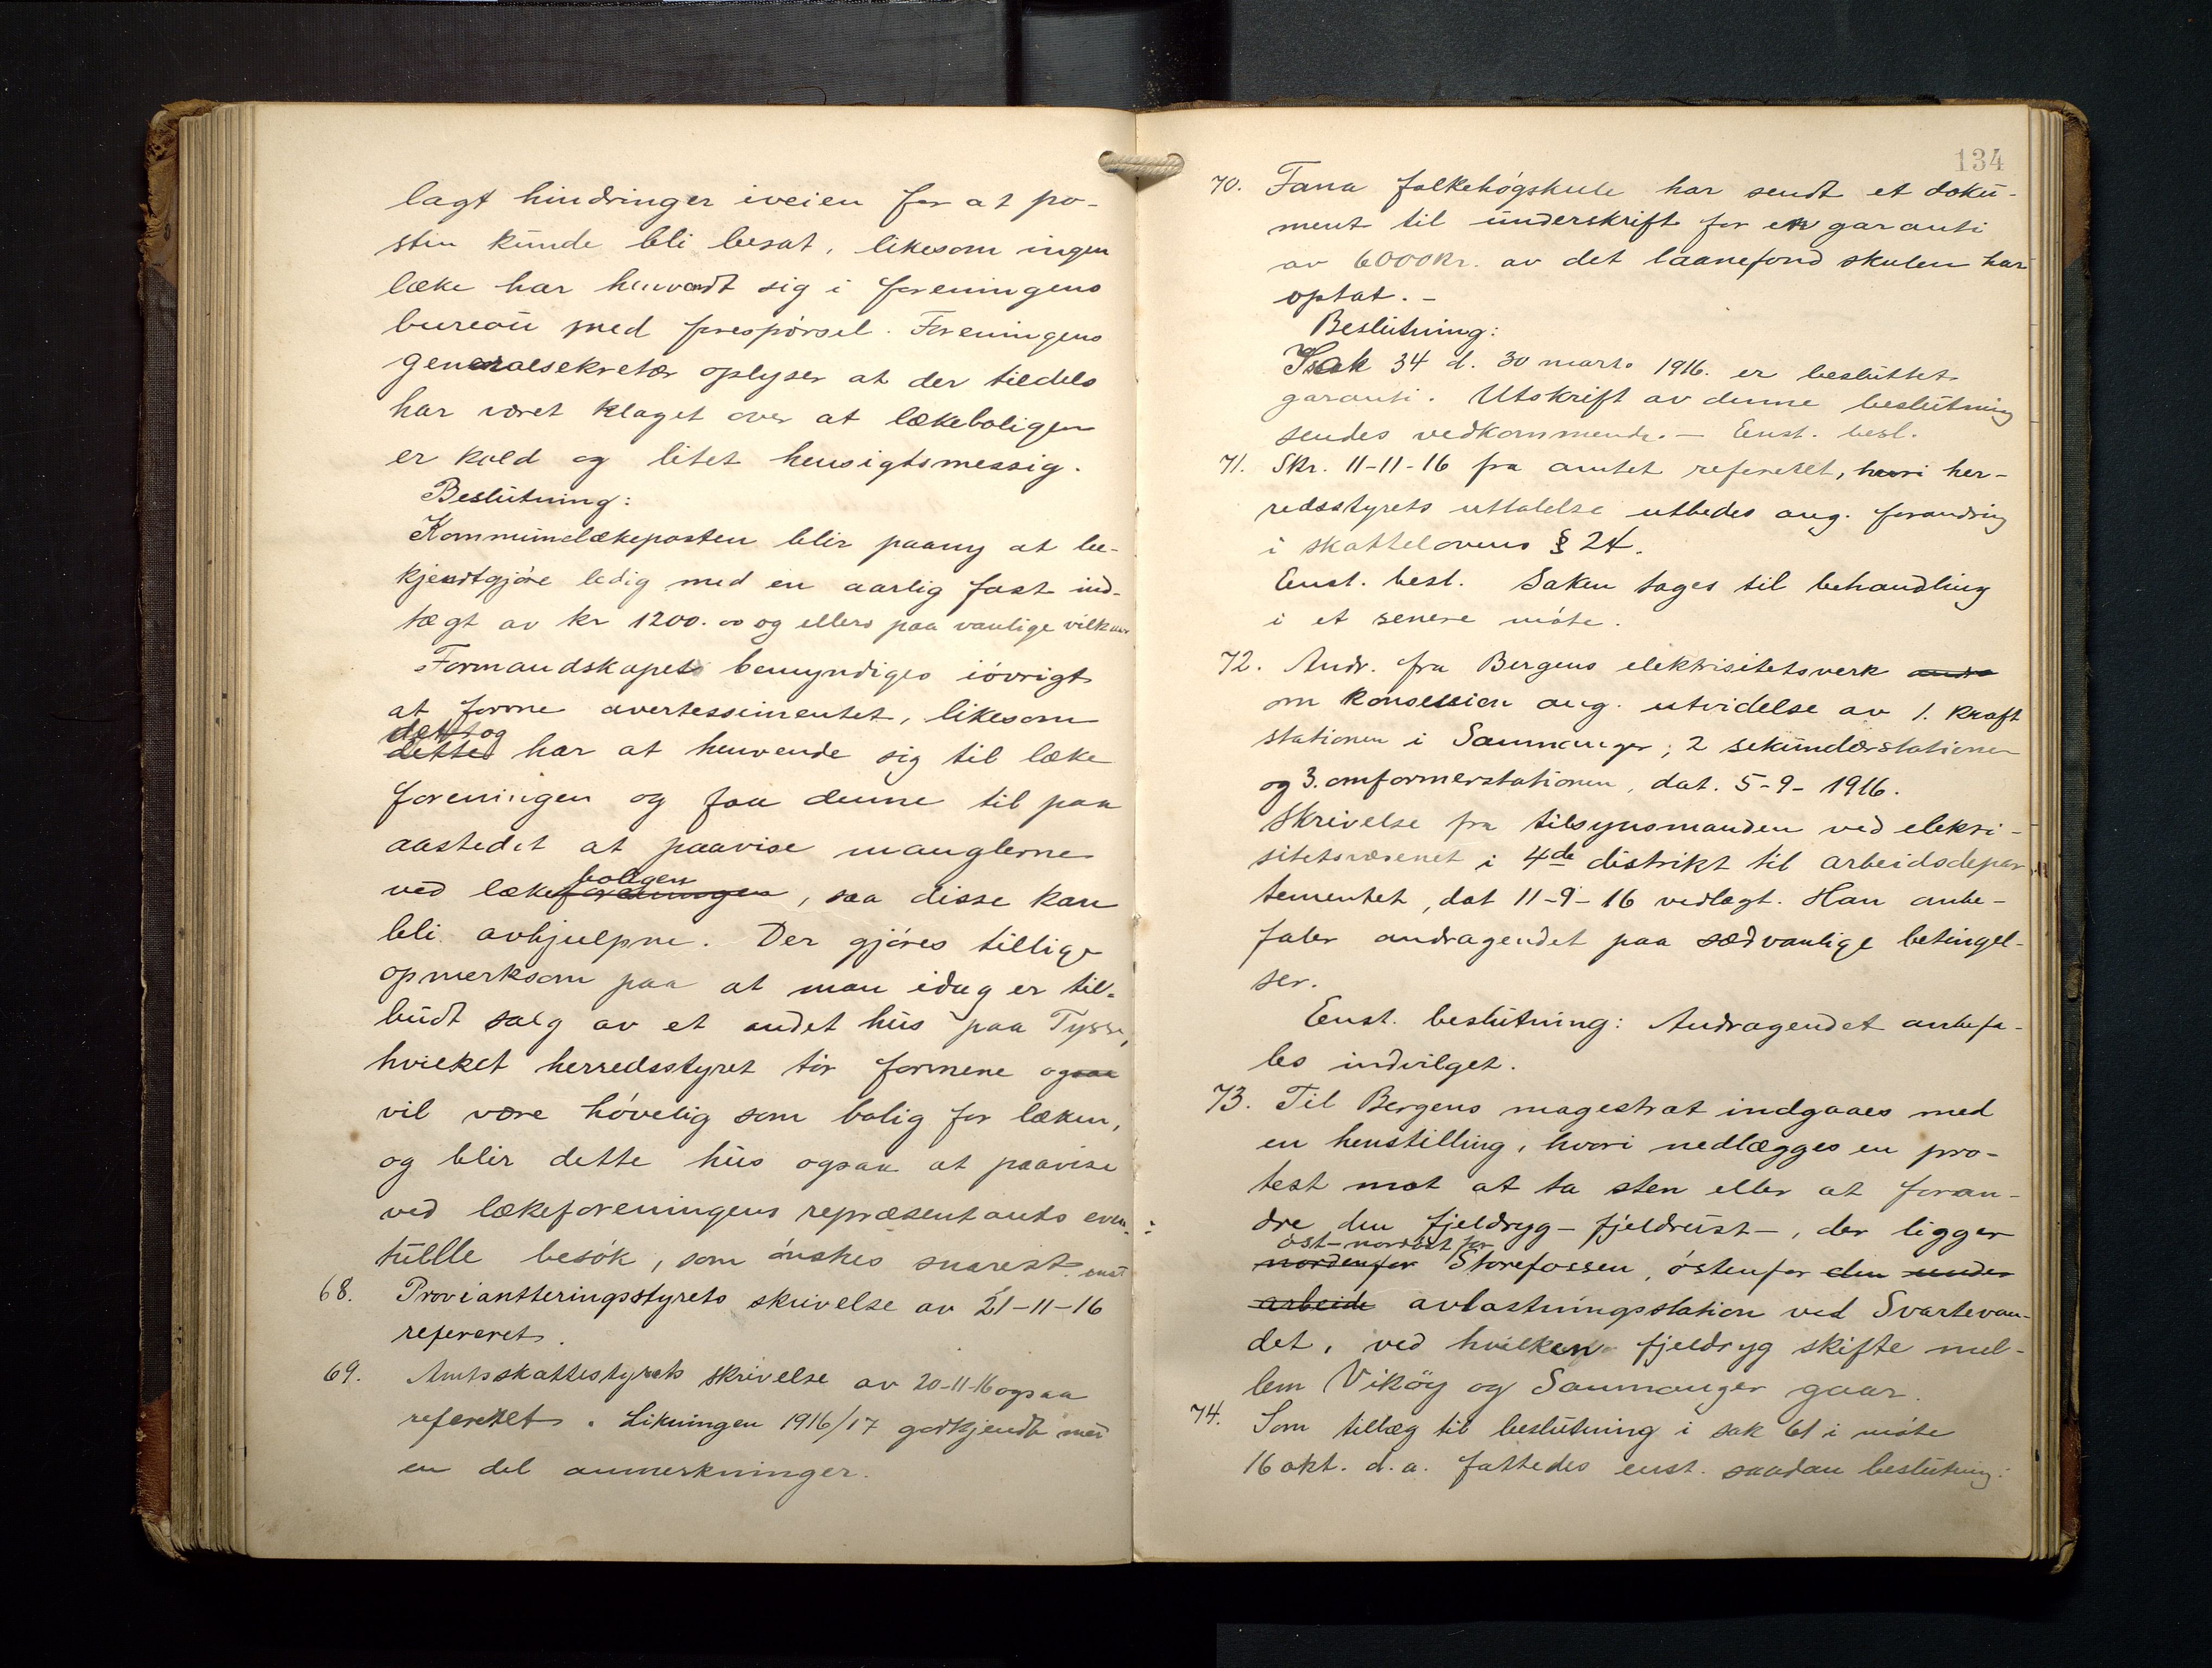 lagt hindringer iveien for at po-
sten kunde bli besat, likesom ingen
læke har henvendt sig i foreningens
bureau med forespørsel. Foreningens
generalsekretær oplyser at der tildels
har været klaget over at lækeboligen
er kold og litet hensigtsmessig.
Beslutning:
Kommunelækeposten blir paany at be-
kjendtgjøre ledig med en aarlig fast ind-
tægt av kr 1200.00 og ellers paa vanlige vilkaar
Formandskapet bemyndiges iøvrigt
at forme avertessimentet, likesom
det og
dette har at henvende sig til læke
foreningen og faa denne til paa
aastedet at paavise manglerne
boligen
ved lækeforeningen, saa disse kan
bli avhjulpne. Der gjøres tillige
opmerksom paa at man idag er til-
budt salg av et andet hus paa Tysse,
hvilket herredsstyret tør formene ogsaa
vil være høvelig som bolig for læken,
og blir dette hus ogsaa at paavise
ved lækeforeningens repræsentants even-
tuelle besøk, som ønskes snarest. enst
68. Proviantteringsstyrets skrivelse av 21-11-16
referert.
69. Amtsskattestyrets skrivelse av 20-11-16 ogsaa
referert. Likningen 1916/17 godkjendt med
en del anmerkninger.
134
70. Fana folkehøgskule har sendt et doku-
ment til underskrift for en garanti
av 6000 kr. av det laanefond skulen har
optat. -
Beslutning:
I sak 34 d. 30 mars 1916. er besluttet
garanti. Utskrift av denne beslutning
sendes vedkommende. - Enst. besl.
71. Skr. 11-11-16 fra amtet referert, hvori her-
redsstyrets uttalelse utbedes ang. forandring
i skattelovens § 24.
Enst. besl. Saken tages til behandling
i et senere møte.
72. Andr. fra Bergens elektrisitetsverk andr
om konsession ang. utvidelse av 1. kraft
stationen i Samnanger; 2 sekundærstationen
og 3. omformerstationen, dat. 5-9-1916.
Skrivelse fra tilsynsmanden ved elektri-
sitetsvæsenet i 4de distrikt til arbeidsdepar
tementet, dat 11-9-16 vedlagt. Han anbe-
faler andragendet paa sædvanlige betingel-
ser.
Enst. beslutning: Andragendet anbefa-
les indvilget.
73. Til Bergens magestrat indgaaes med
en henstilling, hvori nedlægges en pro-
test mot at ta sten eller at foran-
dre den fjeldryg - fjeldrust -, der ligger
øst-nordøst for
nordenfor Storefossen, østenfor den under
arbeide avlastningsstation ved Svartevan-
det, ved hvilken fjeldryg skifte mel-
lem Vikøy og Samnanger gaar.
74. Som tillæg til beslutning i sak 61 i møte
16 okt. d.a. fattedes enst. saadan beslutning: